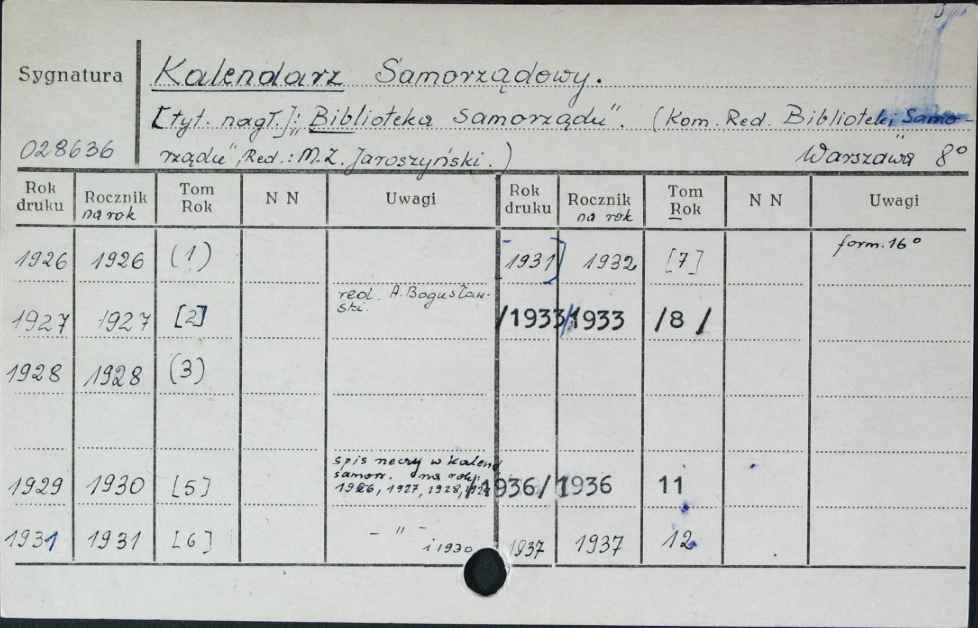 Sygnatura
Kalendarz Samorządowy.
[tyt. nagł.]: „Biblioteka Samorządu". (Kom. Red. Biblioteki Samo-
028636
rządu", Red.: M. Z. Jaroszyński.) Warszawa 8°
Rok druku | Rocznik na rok | Tom Rok | N N | Uwagi | Rok druku | Rocznik na rok | Tom Rok | N N | Uwagi
1926 | 1926 | (1) | | | [1931] | 1932 | [7] | | form. 16°
1927 | 1927 | [2] | | red. A. Bogusław-
ski. | /1933/ | 1933 | /8/
1928 | 1928 | (3)
1929 | 1930 | [5] | | spis rzeczy w kalend.
samorz. na roky:
1926, 1927, 1928, | 1936/ | 1936 | 11
1931 | 1931 | [6] | | – " –
i 1930 | 1937 | 1937 | 12